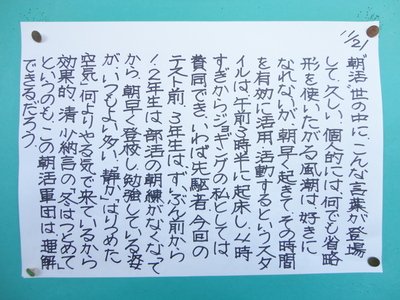 11/21
"朝活"世の中に、こんな言葉が登場
して、久しい。個人的には、何でも省略
形を使いたがる風潮は、好きに
なれないが、朝早く起きて、その時間
を有効に活用、活動するというスタ
イルは、午前3時半に起床し、4時
すぎからジョギングの私としては、
賛同でき、いわば先駆者。今回の
テスト前、3年生は、ずいぶん前から
1、2年生は、部活の朝練がなくなって
から、朝早く登校し、勉強している姿
が、いつもより多い。静か、はりつめた
空気、何よりやる気で来ているから
効果的。清少納言の「冬はつとめて」
というのも、この朝活軍団は理解
できるだろう。